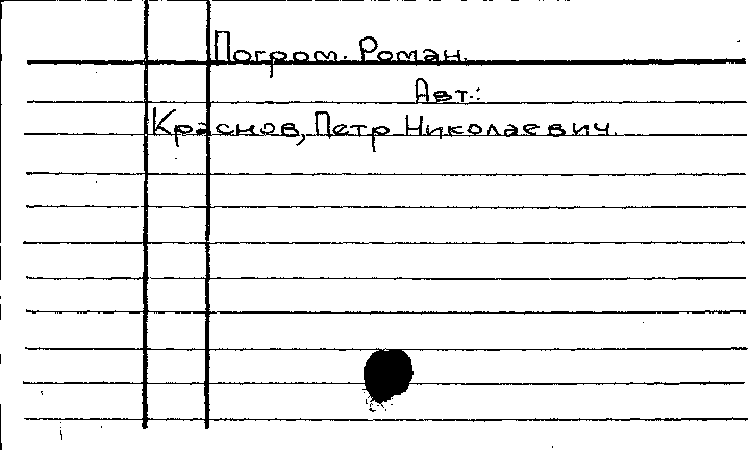 Погром. Роман.
Авт.:
Краснов, Петр Николаевич.